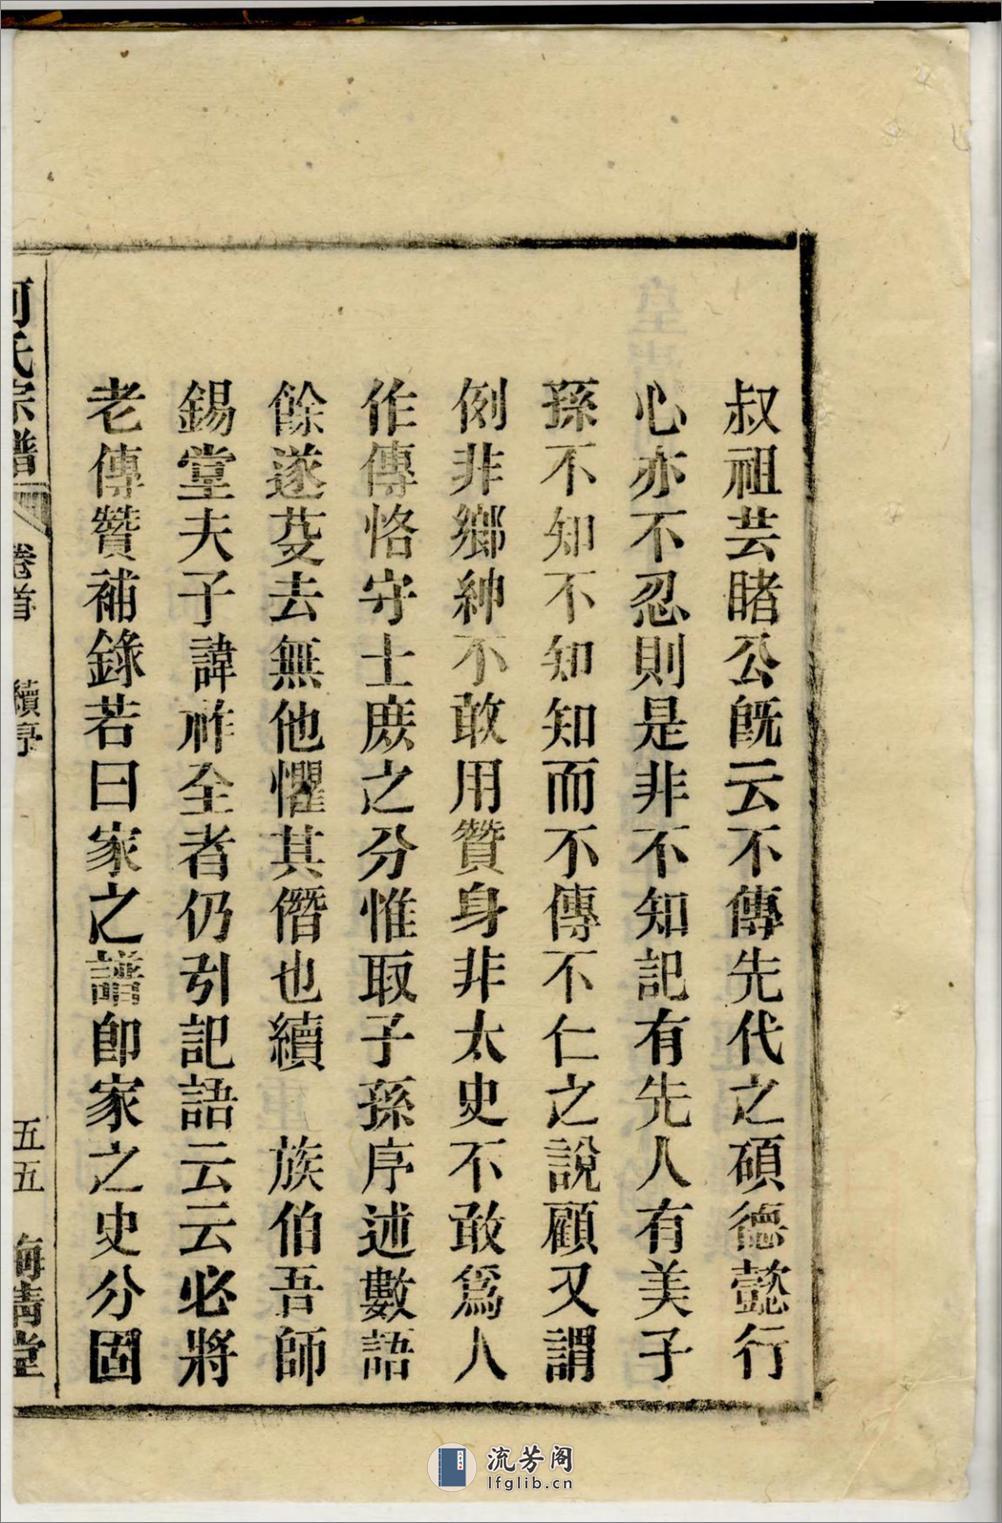 叔祖芸睹公旣云不傳先代之碩德懿行
心亦不忍則是非不知記有先人有美子
孫不知不知知而不傳不仁之說顧又謂
例非鄉紳不敢用贊身非太史不敢爲人
作傳恪守士庻之分惟取子孫序述數語
餘遂芟去無他懼其僭也續　族伯吾師
錫堂夫子諱祚全者仍引記語云云必將
老傳贊補錄若曰家之譜卽家之史分固
何氏宗譜　卷首　續序　五五　海清堂
流芳阁
lfglib.cn